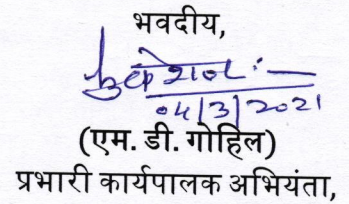 भवदीय,
04/3/2021
(एम. डी. गोहिल)
प्रभारी कार्यपालक अभियंता,